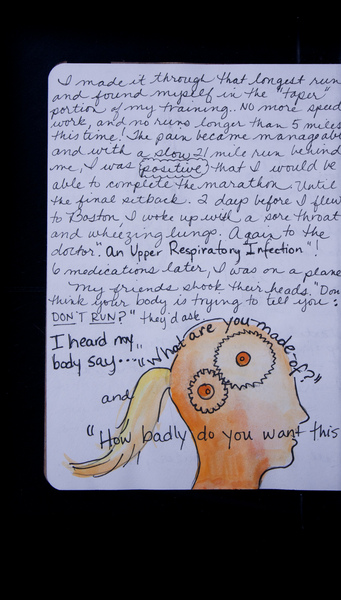 I made it through that longest run
and found myself in the "taper"
portion of my training.. No more speed
work, and no runs longer than 5 miles
this time! The pain became manageabl
and with a slow 21 mile run behind
me, I was positive that I would be
able to complete the marathon. Until
the final setback. 2 days before I flew
to Boston, I woke up with a sore throat
and wheezing lungs. Again to the
doctor. "An Upper Respiratory Infection"!
6 medications later, I was on a plane
My friends shook their heads. "Don
think your body is trying to tell you:
DON'T RUN?" they'd ask
I heard my
body say... "What are you made of?"
and
"How badly do you want this